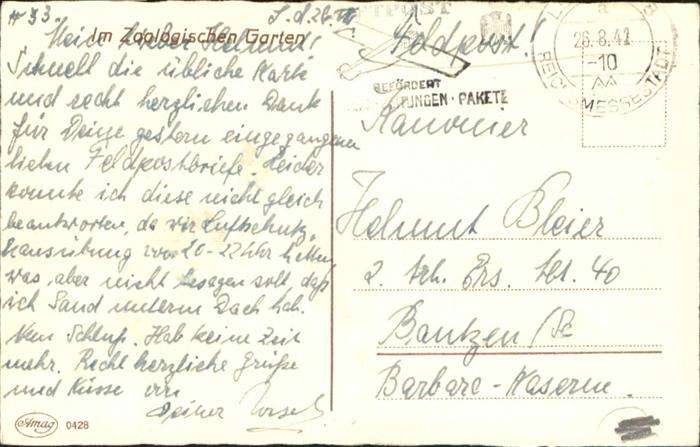 # 33.
L. d. 26. VIII
Im Zoologischen Garten
Mein lieber Helmut!
Schnell die übliche Karte
und recht herzlichen Dank
für Deine gestern eingegangenen
lieben Feldpostbriefe. Leider
konnte ich diese nicht gleich
beantworten, da wir Luftschutz-
hausübung von 20-22 Uhr hatten,
was aber nicht besagen soll, daß
ich Sand unterm Dach hab.
Nun Schluß. Hab keine Zeit
mehr. Recht herzliche Grüße
und Küsse von
Deiner
Amag 0428
LUFTPOST
BEFÖRDERT
PAKETE
26.8.41
-10
REICHSMESSESTADT
Feldpost!
Kanonier
Helmut Bleier
2. Ers. Abt. 40
Bautzen / Sa
Barbara-Kaserne.